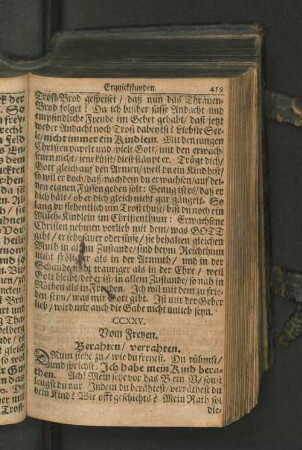 Erquickstunden. 459
Trost-Brod gespeiset / daß nun das Thränen-
Brod folget? Da ich bißher süsse Andacht und
empfindliche Freude im Gebet gehabt / daß jetzt
weder Andacht noch Trost dabey ist? Liebste See-
le / nicht immer ein Kindlein. Mit den jungen
Christen papelt und spielt Gott / mit den erwach-
senen nicht /
Gott gleich auf den Armen / weil du ein Kind bist /
so wil er doch / daß / nachdem du erwachsen / auf dei-
nen eignen Füssen gehen solt: Genug ist es / daß er
dich hält / ob er dich gleich nicht gar gängelt. So
lang du fleischlich im Trost thust / bist du noch ein
Milch-Kindlein im Christenthum: Erwachsene
Christen nehmen vorlieb mit dem / was GOTT
gibt / er sey sauer oder süsse / sie behalten gleichen
Muth in allem Zustande / sind beym Reichthum
nicht frölicher als in der Armuth / und in der
Schande nicht trauriger als in der Ehre / weil
Gott bleibt / der er ist in allem Zustande / so nach in
Nöthen als in Freuden. Ich wil mit dem zu frie-
den seyn / was mir Gott gibt. Ist mir der Geber
lieb / wird mir auch die Gabe nicht unlieb seyn.
CCXXV.
Vom Freyen.
Berahten / verrahten.
DRum siehe zu / wie du freyest. Du rühmst /
und sprichst: Ich habe mein Kind bera-
then. Ach! Mein
leugst du nur. Indem du berähtest / verräthest du
dein Kind? Wie offt geschichts? Mein Rath sol
die-